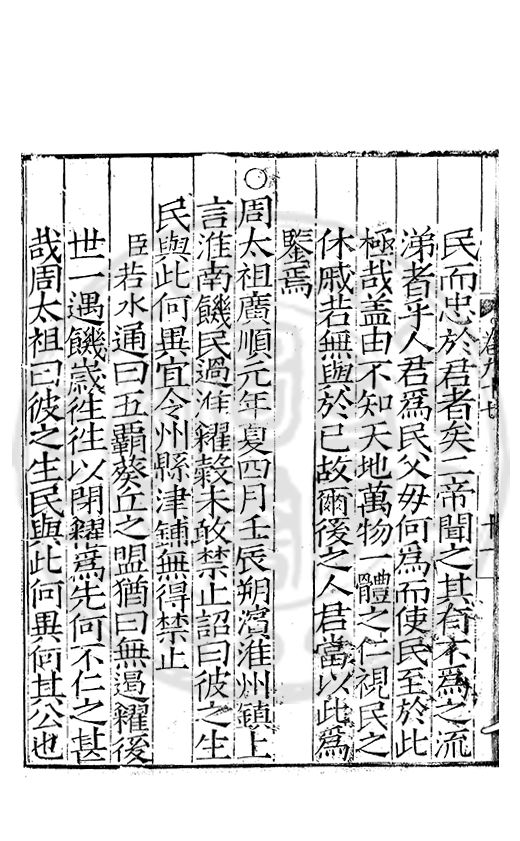 民而忠於君者矣二帝聞之其有不為之流
涕者乎人君爲民父毋何爲而使民至於此
極哉盖由不知天地萬物一體之仁視民之
休戚若無與於已故爾後之人君當以此爲
鑒焉
○周太祖廣順元年夏四月壬辰朔濱淮州鎮上
言淮南饑民過淮糴穀未敢禁止詔曰彼之生
民與此何異宜令州縣津鋪無得禁止
臣若水通曰五霸葵丘之盟猶曰無遏糴後
世一遇饑歲徃徃以閉糴爲先何不仁之甚
哉周太祖曰彼之生民與此何異何其公也